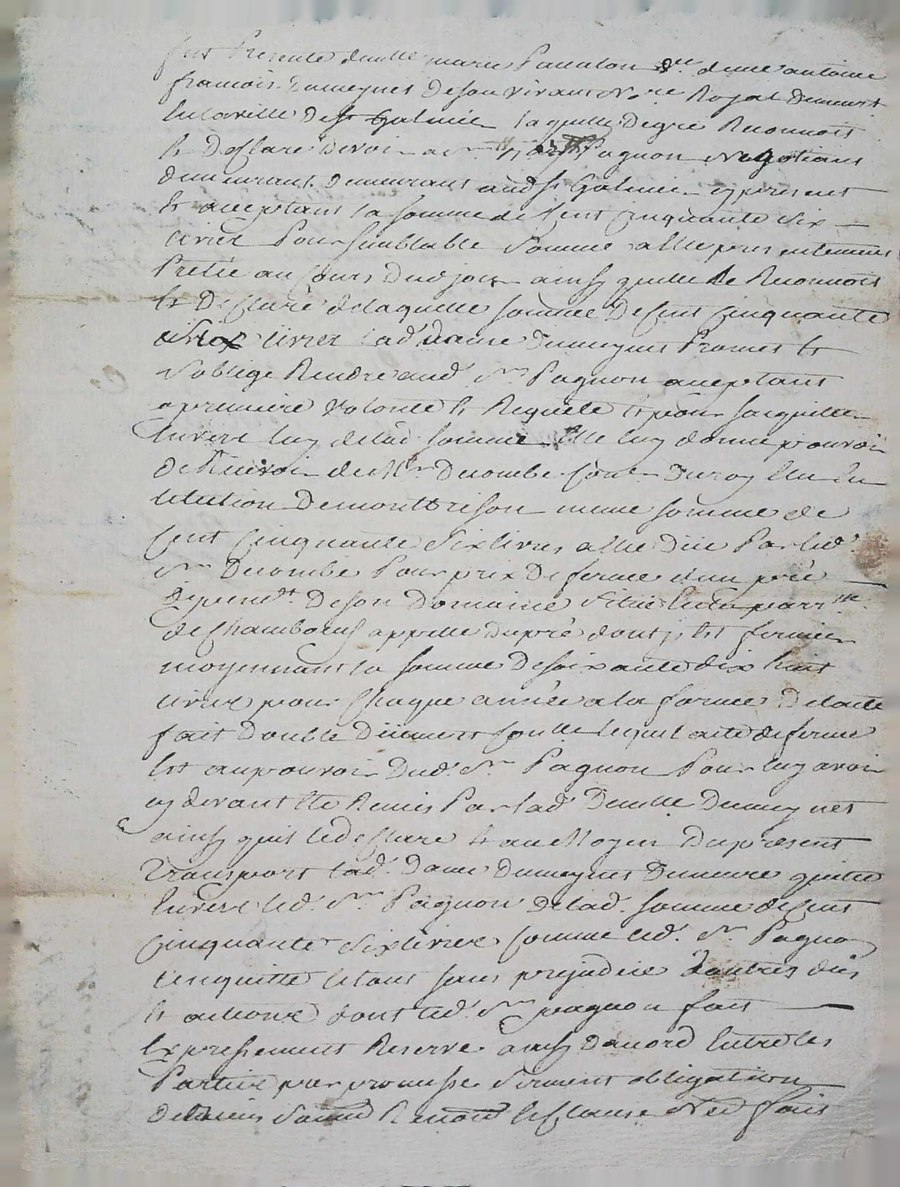 fut Presente demlle marie Paunlon Ve de me antoine
francois Dumeynet de son vivant Nre Royal demeurt
en la ville de St Galmier laquelle de gré Reconnoit
& Declare devoir a Sr Pagnon Negotiant
demeurant demeurant aud St Galmier cy present
& acceptant la somme de Cent Cinquante six
livres Pour semblable Somme a elle presentement
Pretée au Cours Dud jour ainsy quelle Le Reconnoit
& Declare de laquelle somme De Cent Cinquante
six livres lad. Dame Dumeynet Promet &
S'oblige Rendre aud. Sr. Pagnon acceptant
a premiere volonté & Requete & pour sacquitter
Envers luy de lad. somme Elle luy donne pouvoir
de Recevoir de Mr. Ducombe Coner Du roy Elu En
lelection De montbrison meme somme de
Cent Cinquante Six livres a Elle Düe Par led.
Sr. Ducombe Pour prix De ferme d'un pré
Depent. De son Domaine Situé parrsse
de Chambœuf appellé dupré dont il Est fermier
moyennant la somme De soixante dix huit
livres pour Chaque année a la forme De lacte
fait Double Düement lequel acte de ferme
Est au pouvoir Dud. Sr Pagnon Pour luy avoir
cy devant Eté Remis Par lad. Demlle Dumeynet
ainsy quil le declare & au Moyen Du present
Transport lad. Dame Dumeynet Demeure quitte
Envers led. Sr. Pagnon De lad. somme de Cent
Cinquante Six livres Comme led. Sr. Pagnon
l'en quitte Etant sans prejudice Dautres dus
& actions dont led. Sr pagnon fait
Expressement Reserve ainsy Daccord Entre les
Parties par promesse Serment obligation
de biens Renond & Clause Ned fait